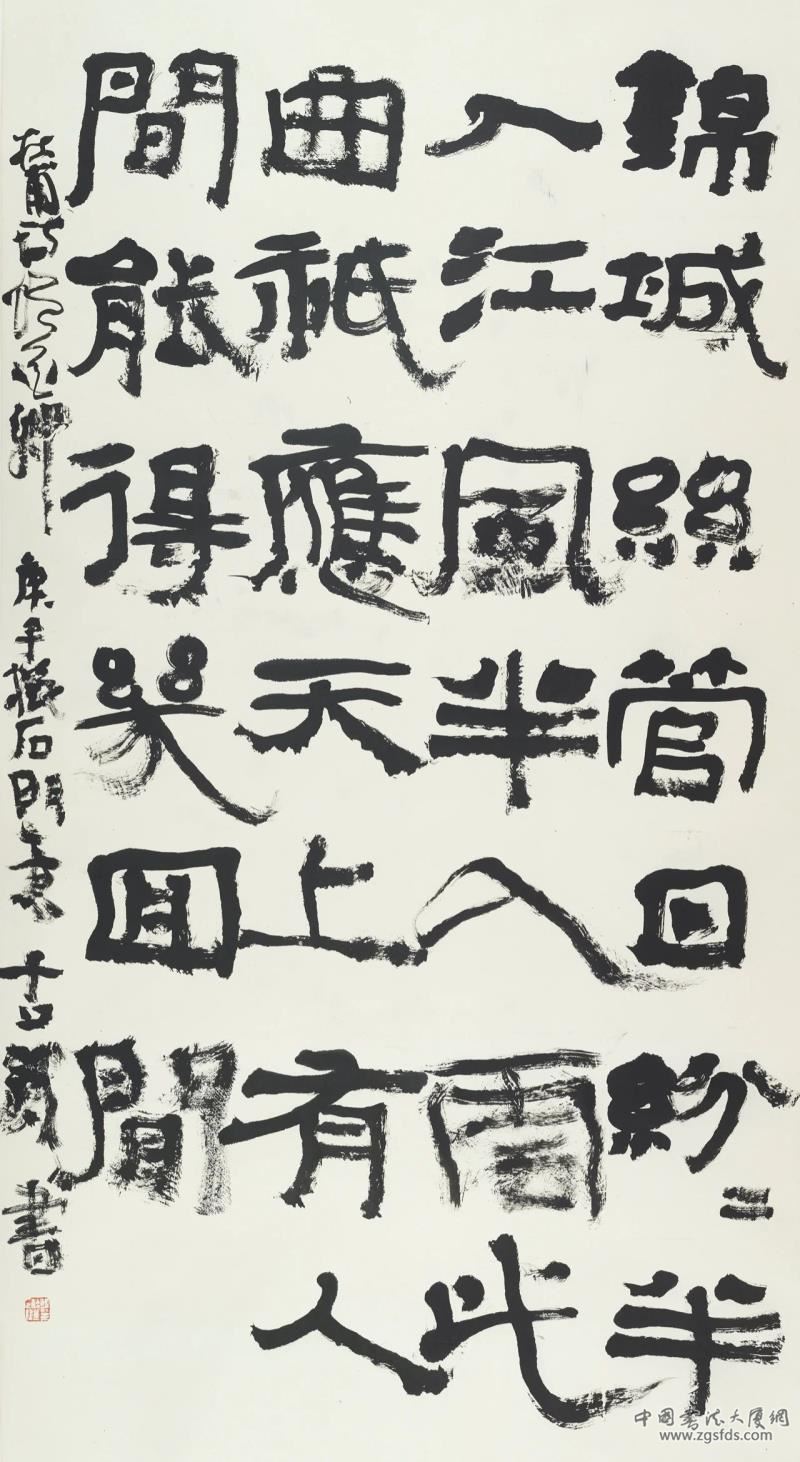 錦城絲管日紛〻半
入江風半入雲此
曲祇應天上有人
間能得幾回聞
杜甫詩贈花卿 庚子 石門 書
中國書法大廈網
www.zgsfds.com